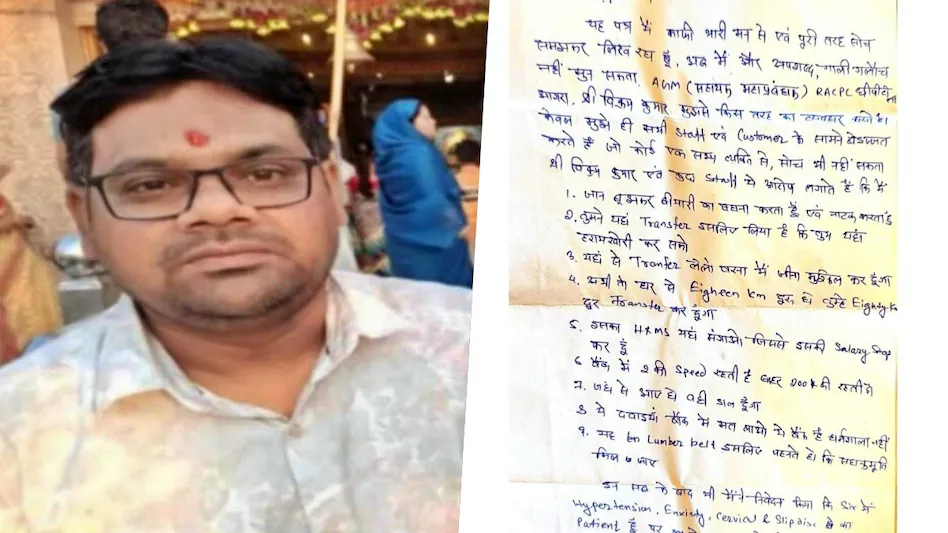 यह पत्र मैं काफी भारी मन से एवं पूरी तरह सोच
समझकर लिख रहा हूँ, अब मैं और अपशब्द, गाली गलौच
नहीं सुन सकता, AGM (सहायक महाप्रबंधक) RACPC
आगरा, श्री विक्रम कुमार मुझसे किस तरह का व्यवहार करते है।
केवल मुझे ही सभी Staff एवं Customer के सामने बेइज्जत
करते हैं जो कोई एक सभ्य व्यक्ति से, सोच भी नहीं सकता
श्री विक्रम कुमार एवं कुछ Staff ये आरोप लगाते हैं कि मैं
1. जान बूझकर बीमारी का बहाना करता हूँ एवं नाटक करता हूँ
2. तुमने यहां Transfer इसलिए लिया है कि तुम यहां
हरामखोरी कर सको
3. यहां से Tranfer लेलो वरना मैं जीना मुश्किल कर दूंगा
4. अभी तो घर से Eigheen km दूर हो तुम्हे Eighty Km
दूर Transfer कर दूंगा
5. इसका HRMS यहां मंगाओ जिससे इसकी Salary Stop
कर दूँ
6 बैंक में 2 की Speed रहती है बाहर 200 की रहती है
7. जहां से आए हो वहीं डाल दूँगा
8 ये दवाइयां बैंक में मत लाओ ये बैंक है धर्मशाला नहीं
9. यह Lumber belt इसलिए पहनते हो कि सहानुभूति
मिल जाए
इन सब के बाद भी मैंने निवेदन किया कि Sir मैं
Hypertension, Enxiety, Cervical & Slipdisc का
Patient हूँ पर